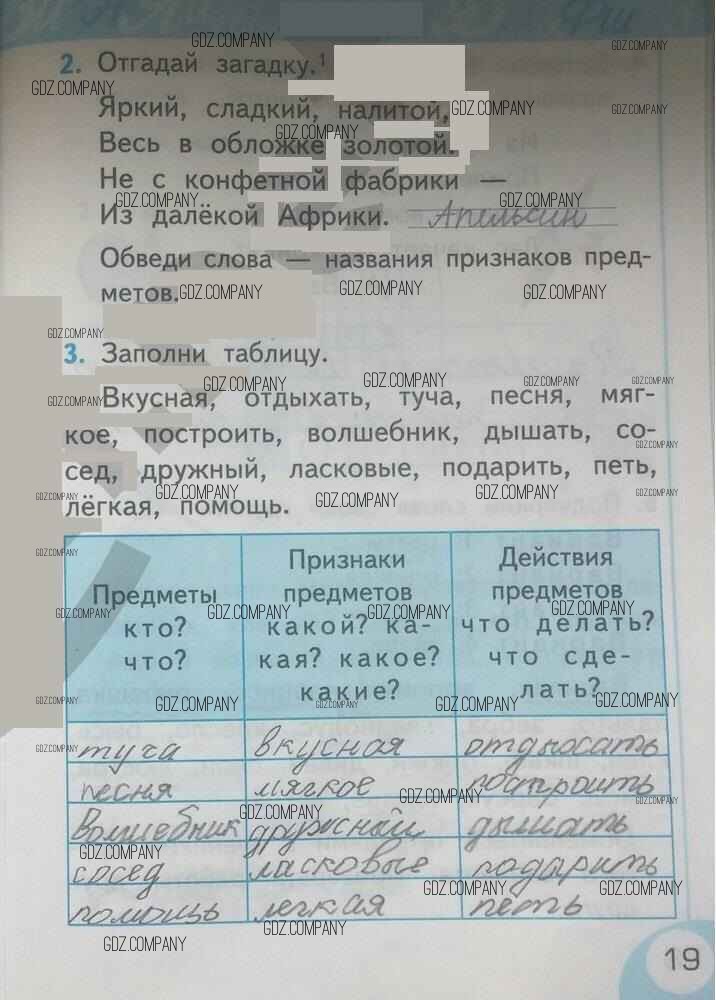 2. Отгадай загадку.¹
Яркий, сладкий, налитой,
Весь в обложке золотой.
Не с конфетной фабрики —
Из далёкой Африки. Апельсин
Обведи слова — названия признаков пред-
метов.
3. Заполни таблицу.
Вкусная, отдыхать, туча, песня, мяг-
кое, построить, волшебник, дышать, со-
сед, дружный, ласковые, подарить, петь,
лёгкая, помощь.
Предметы кто? что?
Признаки предметов какой? ка-
кая? какое? какие?
Действия предметов что делать?
что сде-
лать?
туча вкусная отдыхать
песня мягкое построить
Волшебник дружный дышать
сосед ласковые подарить
помощь легкая петь
19
GDZ.COMPANY